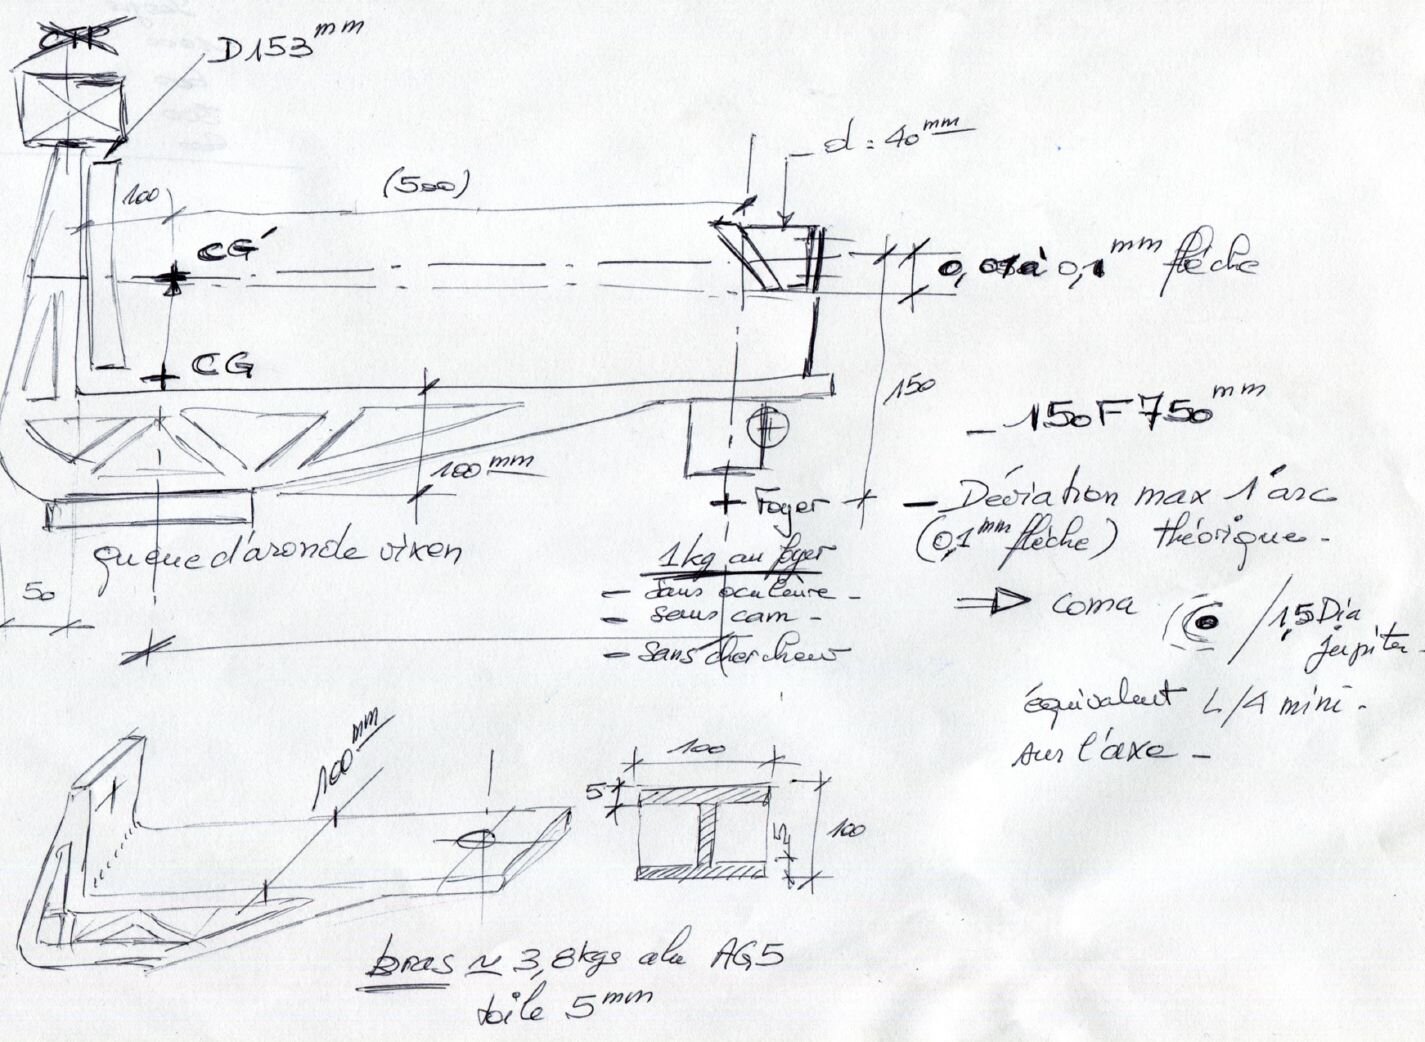 CTP
D153 mm
d = 40 mm
(500)
100
CG'
0,01 à 0,1 mm flèche
CG
150
150 F 750 mm
100 mm
Foyer
– Déviation max 1" arc
(0,1 mm flèche) théorique -
queue d'aronde vixen
1kg au foyer
– sans oculaire -
– sans cam -
– sans chercheur
50
⇒ coma / 1,5 Dia
jupiter -
équivalent L/4 mini -
sur l'axe -
100 mm
100
5
5
100
bras ≃ 3,8kgs alu AG5
toile 5 mm